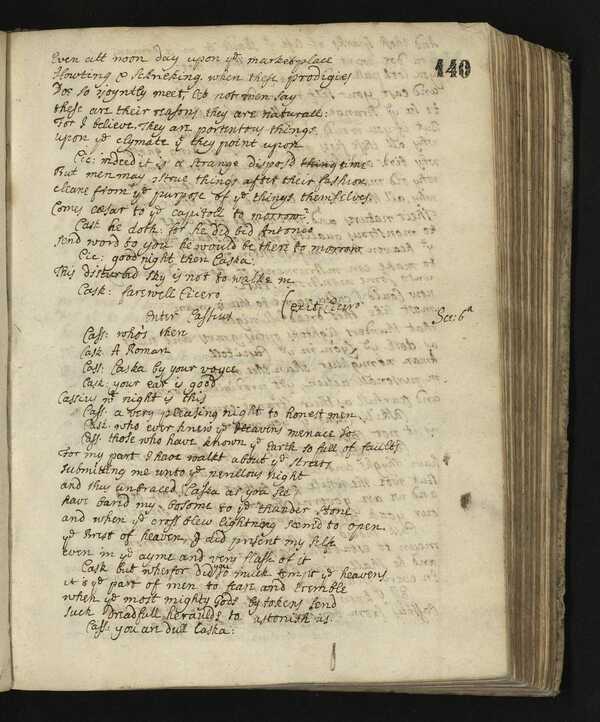 140
Even att noon day upon ye marketplace
Howting & schrieking. when these prodigies
Doe so ioyntly meet let not men say
these are their reasons they are naturall:
For I believe they are portentous things
upon ye clymate yt they point upon
Cic: indeed it is a strange disposd thing time
But men may strue things after their fashion
cleane from ye purpose of ye things themselves.
Comes cæsar to ye capitoll to morrow?
Cask he doth: for he did bid Antonio
send word to you he would be there to morrow
Cic: good night then Caska:
This disturbid sky is not to walke in
Cask: farewell Cicero
(exit Cicero
Enter Cassius
Sce: 6a
Cass: who's there
Cask: A Roman
Cass: Caska by your voyce
Cask: your ear is good
Cassius wt night is this
Cass: a very pleasing night to honest men
Cask: who ever knew ye heavens menace so
Cass: those who have known ye Earth so full of faults
For my part I have walkt about ye streets
submitting me unto ye perillous night
and thus unbraced Caska as you see
have bar'd my bosome to ye thunder stone
and when ye cross blew lightning seem'd to open
ye brest of heaven, I did present my self
even in ye ayme and very flash of it
Cask but wherfor did you so much tempt ye heavens
it is ye part of men to fear and tremble
when ye most mighty Gods by tokens send
such dreadfull heraulds to astonish us.
Cass: you are dull Caska: